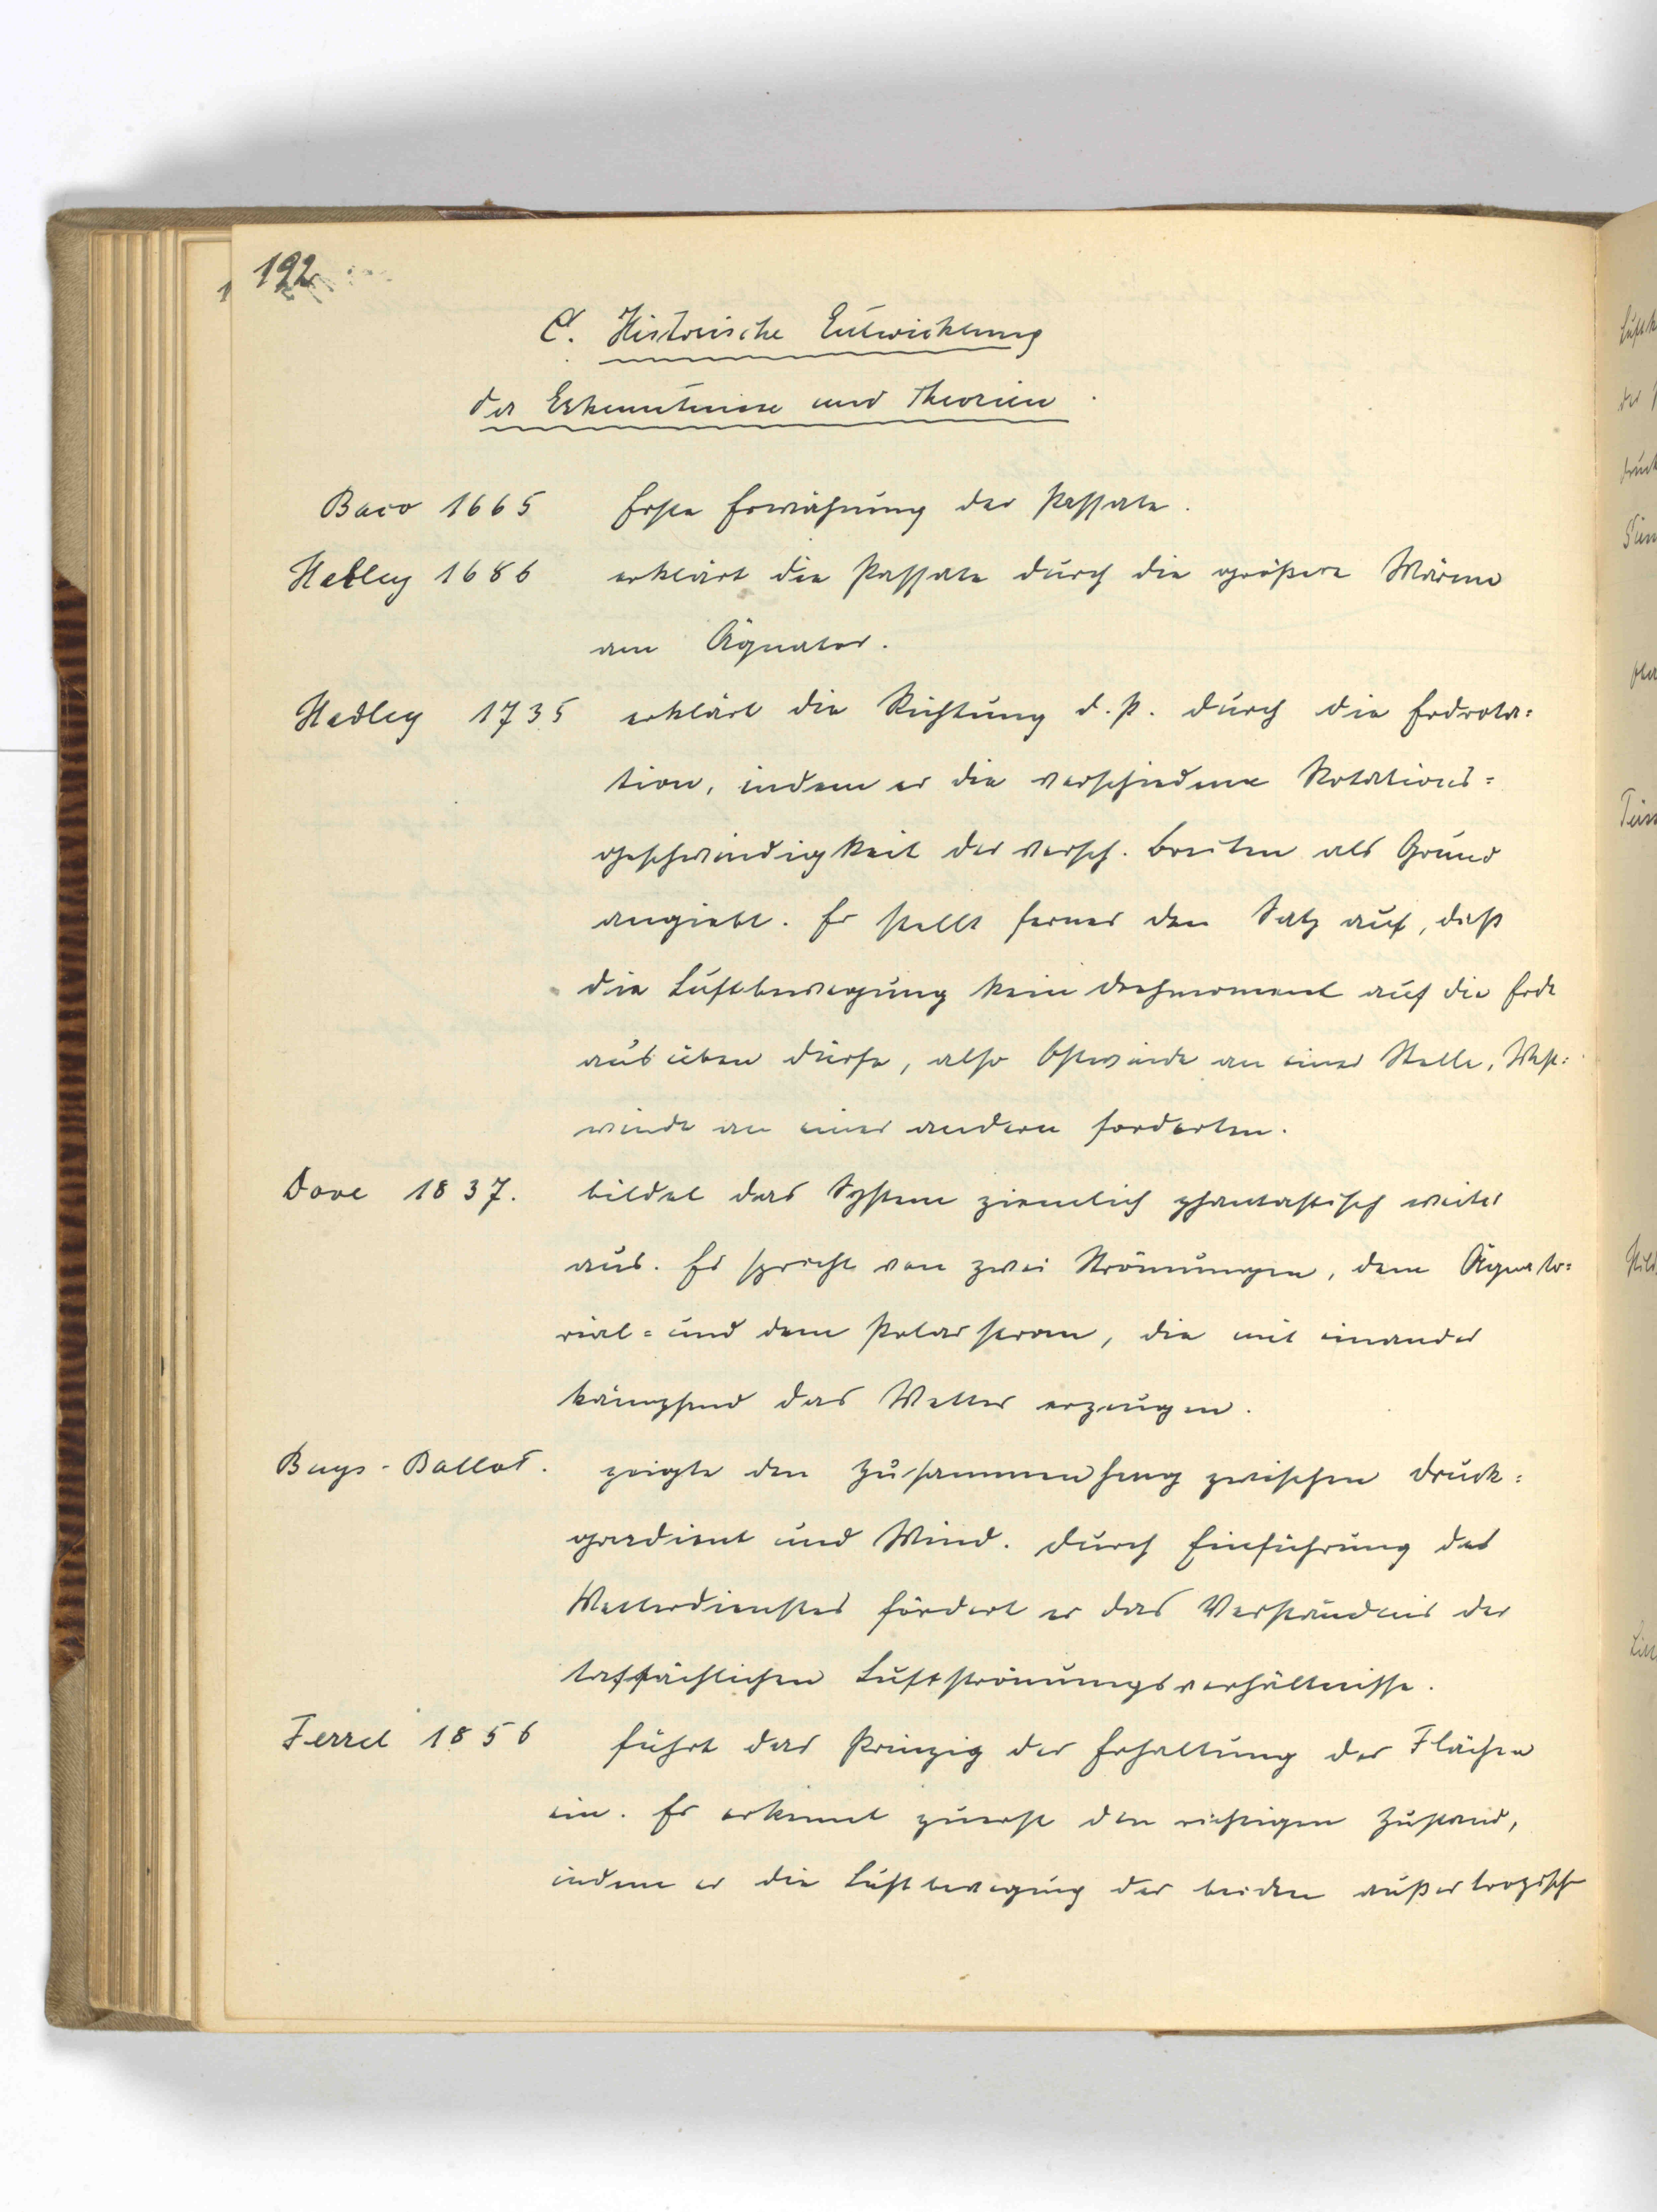 192
C. Historische Entwicklung
der Erkenntnisse und Theorien.
Baco 1665 Erste Erwähnung der Passate.
Halley 1686 erklärt die Passate durch die größere Wärme
am Äquator.
Hadley 1735 erklärt die Richtung d. P. durch die Erdrota=
tion, indem er die verschiedene Rotations=
geschwindigkeit der versch. Breiten als Grund
angiebt. Er stellt ferner den Satz auf, daß
die Luftbewegung kein Drehmoment auf die Erde
ausüben dürfe, also Ostwinde an einer Stelle, West=
winde an einer andern forderten.
Dove 1837. bildet das System ziemlich phantastisch weiter
aus. Er spricht von zwei Strömungen, dem Äquato=
rial= und dem Polarstrom, die mit einander
kämpfend das Wetter erzeugen.
Buys-Ballot. zeigte den Zusammenhang zwischen Druck=
gradient und Wind. Durch Einführung des
Wetterdienstes fördert er das Verständnis der
tatsächlichen Luftströmungsverhältnisse.
Ferrel 1856 führt das Prinzip der Erhaltung der Flächen
ein. Er erkennt zuerst den richtigen Zustand,
indem er die Luftbewegung der beiden außertropisch